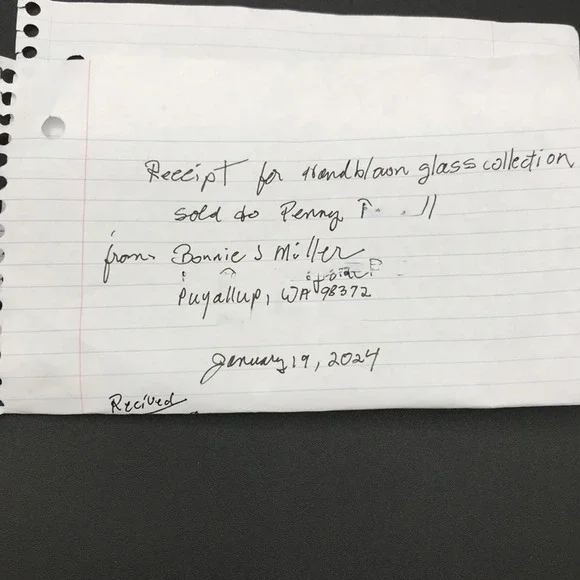 Receipt for Handblown glass collection
sold to Penny
from Bonnie S Miller
Puyallup, WA 98372
January 19, 2024
Recived